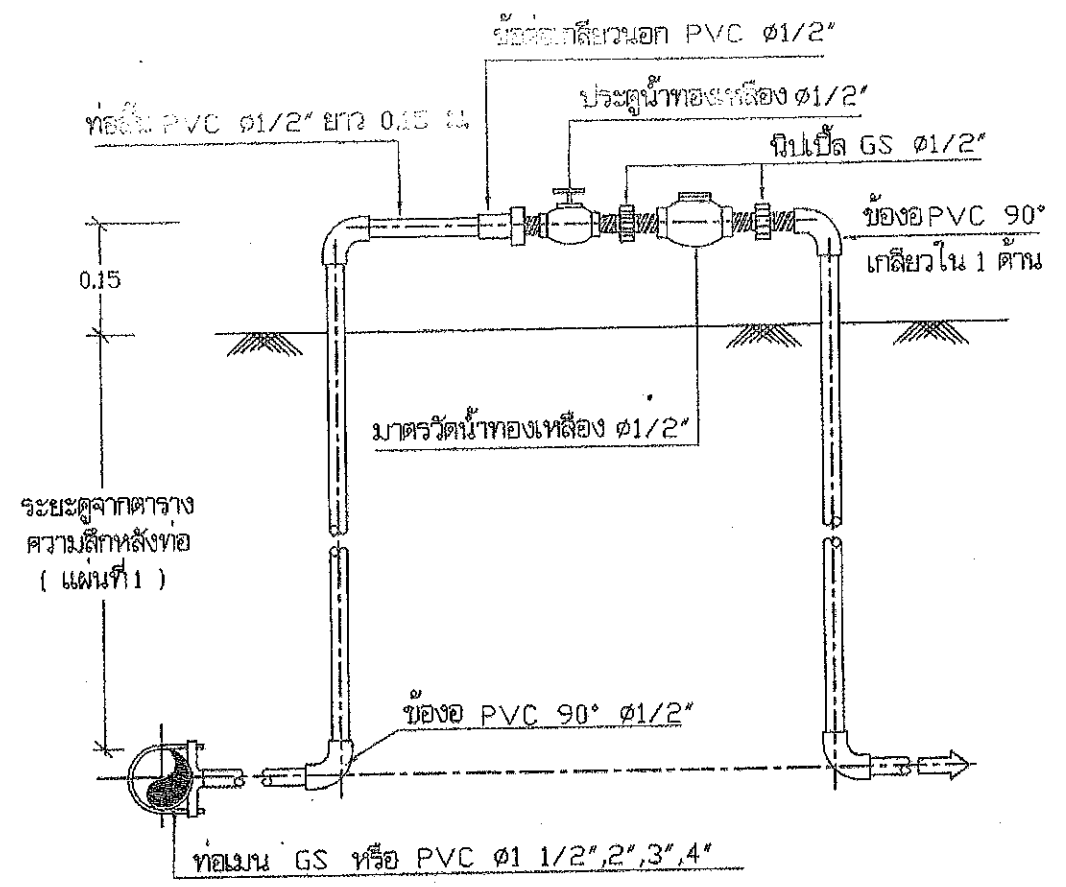 ข้อต่อเกลียวนอก PVC ø1/2"
ประตูน้ำทองเหลือง ø1/2"
ท่อสั้น PVC ø1/2" ยาว 0.15 ม.
นิปเปิ้ล GS ø1/2"
ข้องอ PVC 90°
เกลียวใน 1 ด้าน
0.15
มาตรวัดน้ำทองเหลือง ø1/2"
ระยะดูจากตาราง
ความลึกหลังท่อ
( แผ่นที่ 1 )
ข้องอ PVC 90° ø1/2"
ท่อเมน GS หรือ PVC ø1 1/2",2",3",4"